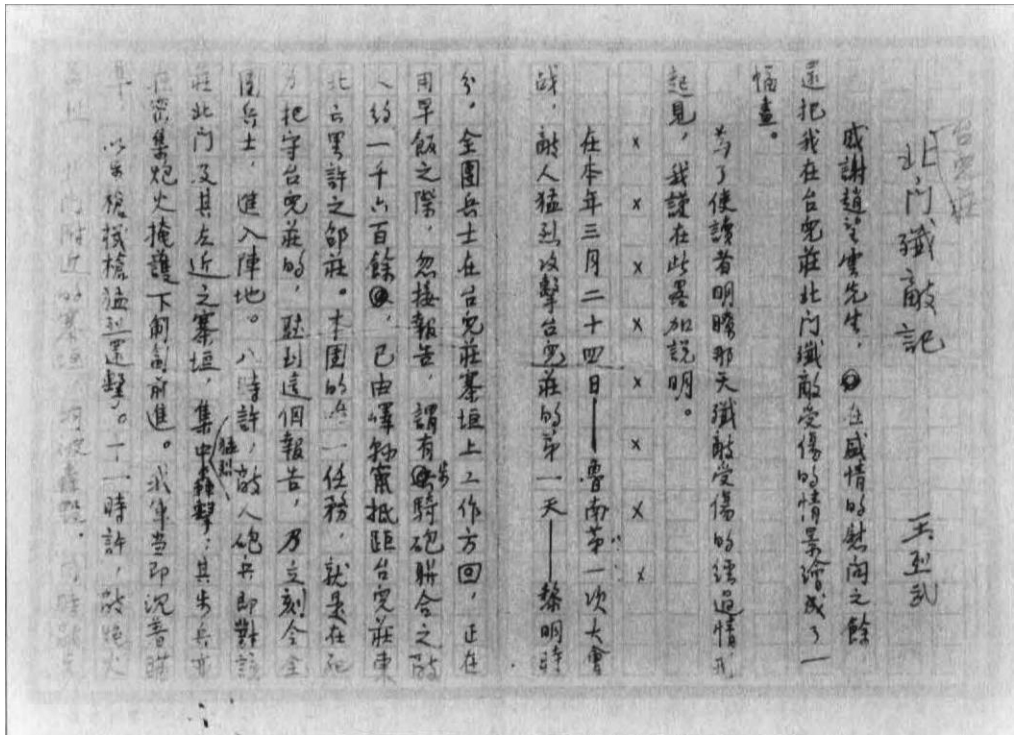 台兒莊
北门殲敵記
王烈武
感謝趙望雲先生,在感情的慰问之餘
還把我在台兒莊北门殲敵受傷的情景繪成了一
幅畫。
為了使讀者明瞭那天殲敵受傷的經過情形
起見,我謹在此畧加說明。
× × × × × × × ×
在本年三月二十四日——魯南第一次大會
战,敵人猛烈攻擊台兒莊的第一天——黎明時
分。全團兵士在台兒莊寨垣上工作方回,正在
用早飯之際,忽接報告,謂有步騎砲聯合之敵
人約一千六百餘,已由嶧縣竄抵距台兒莊東
北六里許之邵莊。本团的唯一任務,就是在死
力把守台兒莊的,聽到這個報告,乃立刻令全
團兵士,進入陣地。八時許,敵人砲兵即對該
莊北门及其左近之寨垣,集中猛烈轟擊;其步兵亦
在密集炮火掩護下匍匐前進。我軍当即沉着瞄
準,以步槍機槍猛烈還擊。十一時許,敵炮火
北门附近的寨垣